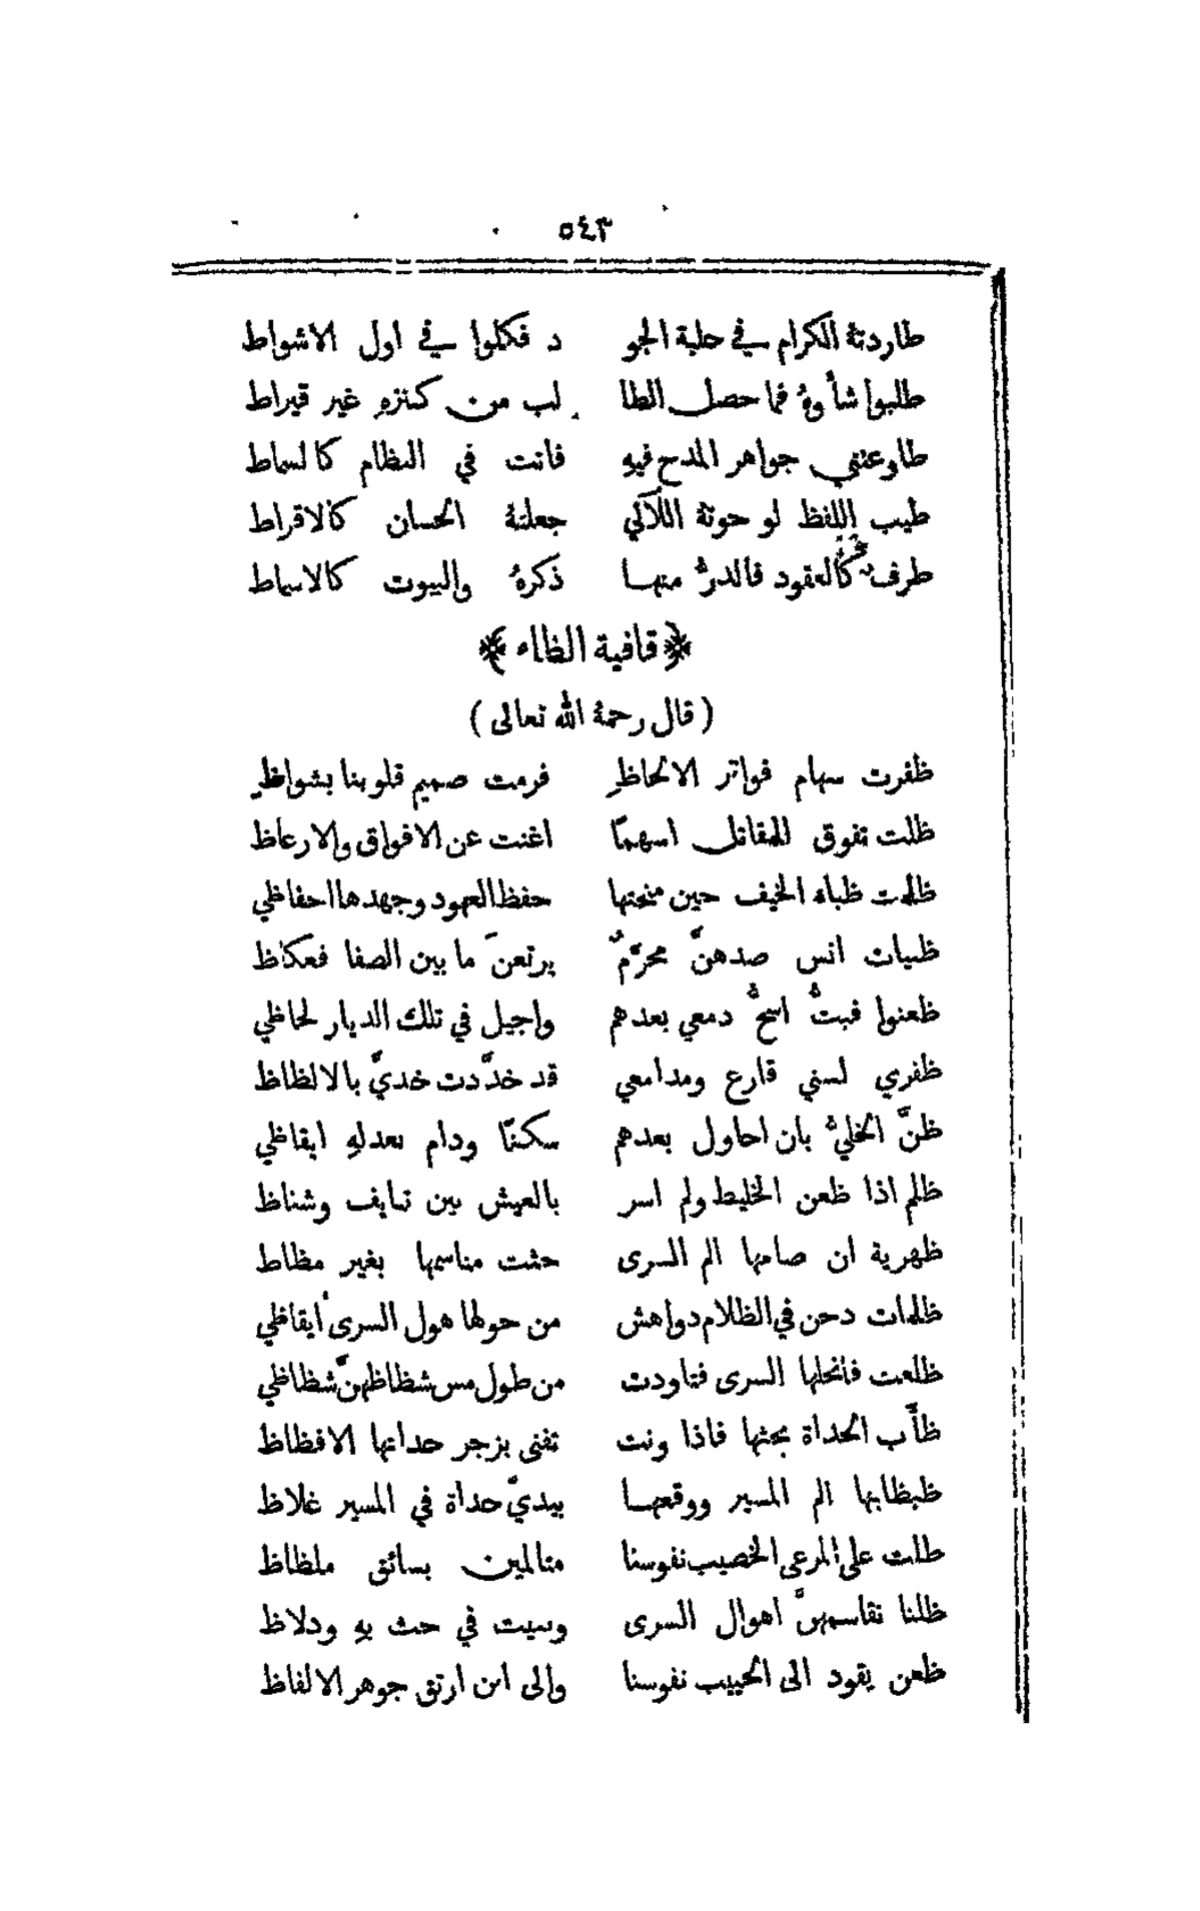 ٥٤٣
طاردته الكرام في حلبة الجو د فكلوا في اول الاشواط
طلبوا شأوهُ فما حصل الطا لب من كنزهِ غير قيراط
طاوعتني جواهر المدح فيهِ فاتت في النظام كالسماط
طيب اللفظ لو حوتهُ اللآلي جعلتهُ الحسان كالاقراط
طرف كالعقود فالدرُّ منها ذكرهُ والبيوت كالاسماط
﴿قافية الظاء﴾
(قال رحمهُ الله تعالى)
ظفرت سهام فواتر الالحاظِ فرمت صميم قلوبنا بشواظِ
ظلت تفوق للمقاتل اسهمًا اغنت عن الافواق والارعاظ
ظلمت ظباء الخيف حين منحتها حفظ العهود وجهدها احفاظي
ظبيات انس صدهنَّ محرَّمٌ يرتعنَ ما بين الصفا فعكاظ
ظعنوا فبتُّ اسحُّ دمعي بعدهم واجيل في تلك الديار لحاظي
ظفري لسني قارع ومدامعي قد خدَّدت خديَّ بالالظاظ
ظنَّ الخليُّ بان احاول بعدهم سكنًا ودام بعدلهِ ايقاظي
ظلم اذا ظعن الخليط ولم اسر بالعيش بين تنايف وشناظ
ظهرية ان صامها الم السرى حثت مناسمها بغير مظاظ
ظلمات دحن في الظلام دواهش من حولها هول السرى أيقاظي
ظلعت فانحلها السرى فتاودت من طول مس شظاظهنَّ شظاظي
ظأَب الحداة بحثها فاذا ونت تفنى بزجر حداتها الافظاظ
ظبظابها الم المسير ووقعها بيديّ حداة في المسير غلاظ
ظلت على المرعى الخصيب نفوسنا متالمين بسائق ملظاظ
ظلنا نقاسمهنَّ اهوال السرى ونبيت في حث بهِ ودلاظ
ظعن يقود الى الحبيب نفوسنا والى ابن ارتق جوهر الالفاظ